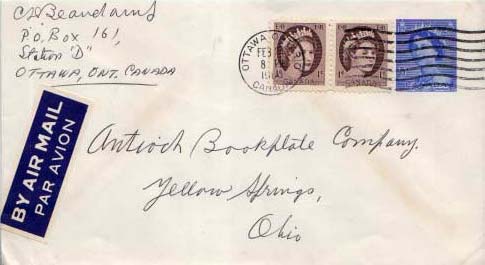 CJ Beauchamp
P.O. Box 161,
Station "D"
OTTAWA, ONT. CANADA
OTTAWA
FEB
CANADA
CANADA
CANADA
BY AIR MAIL
PAR AVION
Antioch Bookplate Company.
Yellow Springs,
Ohio